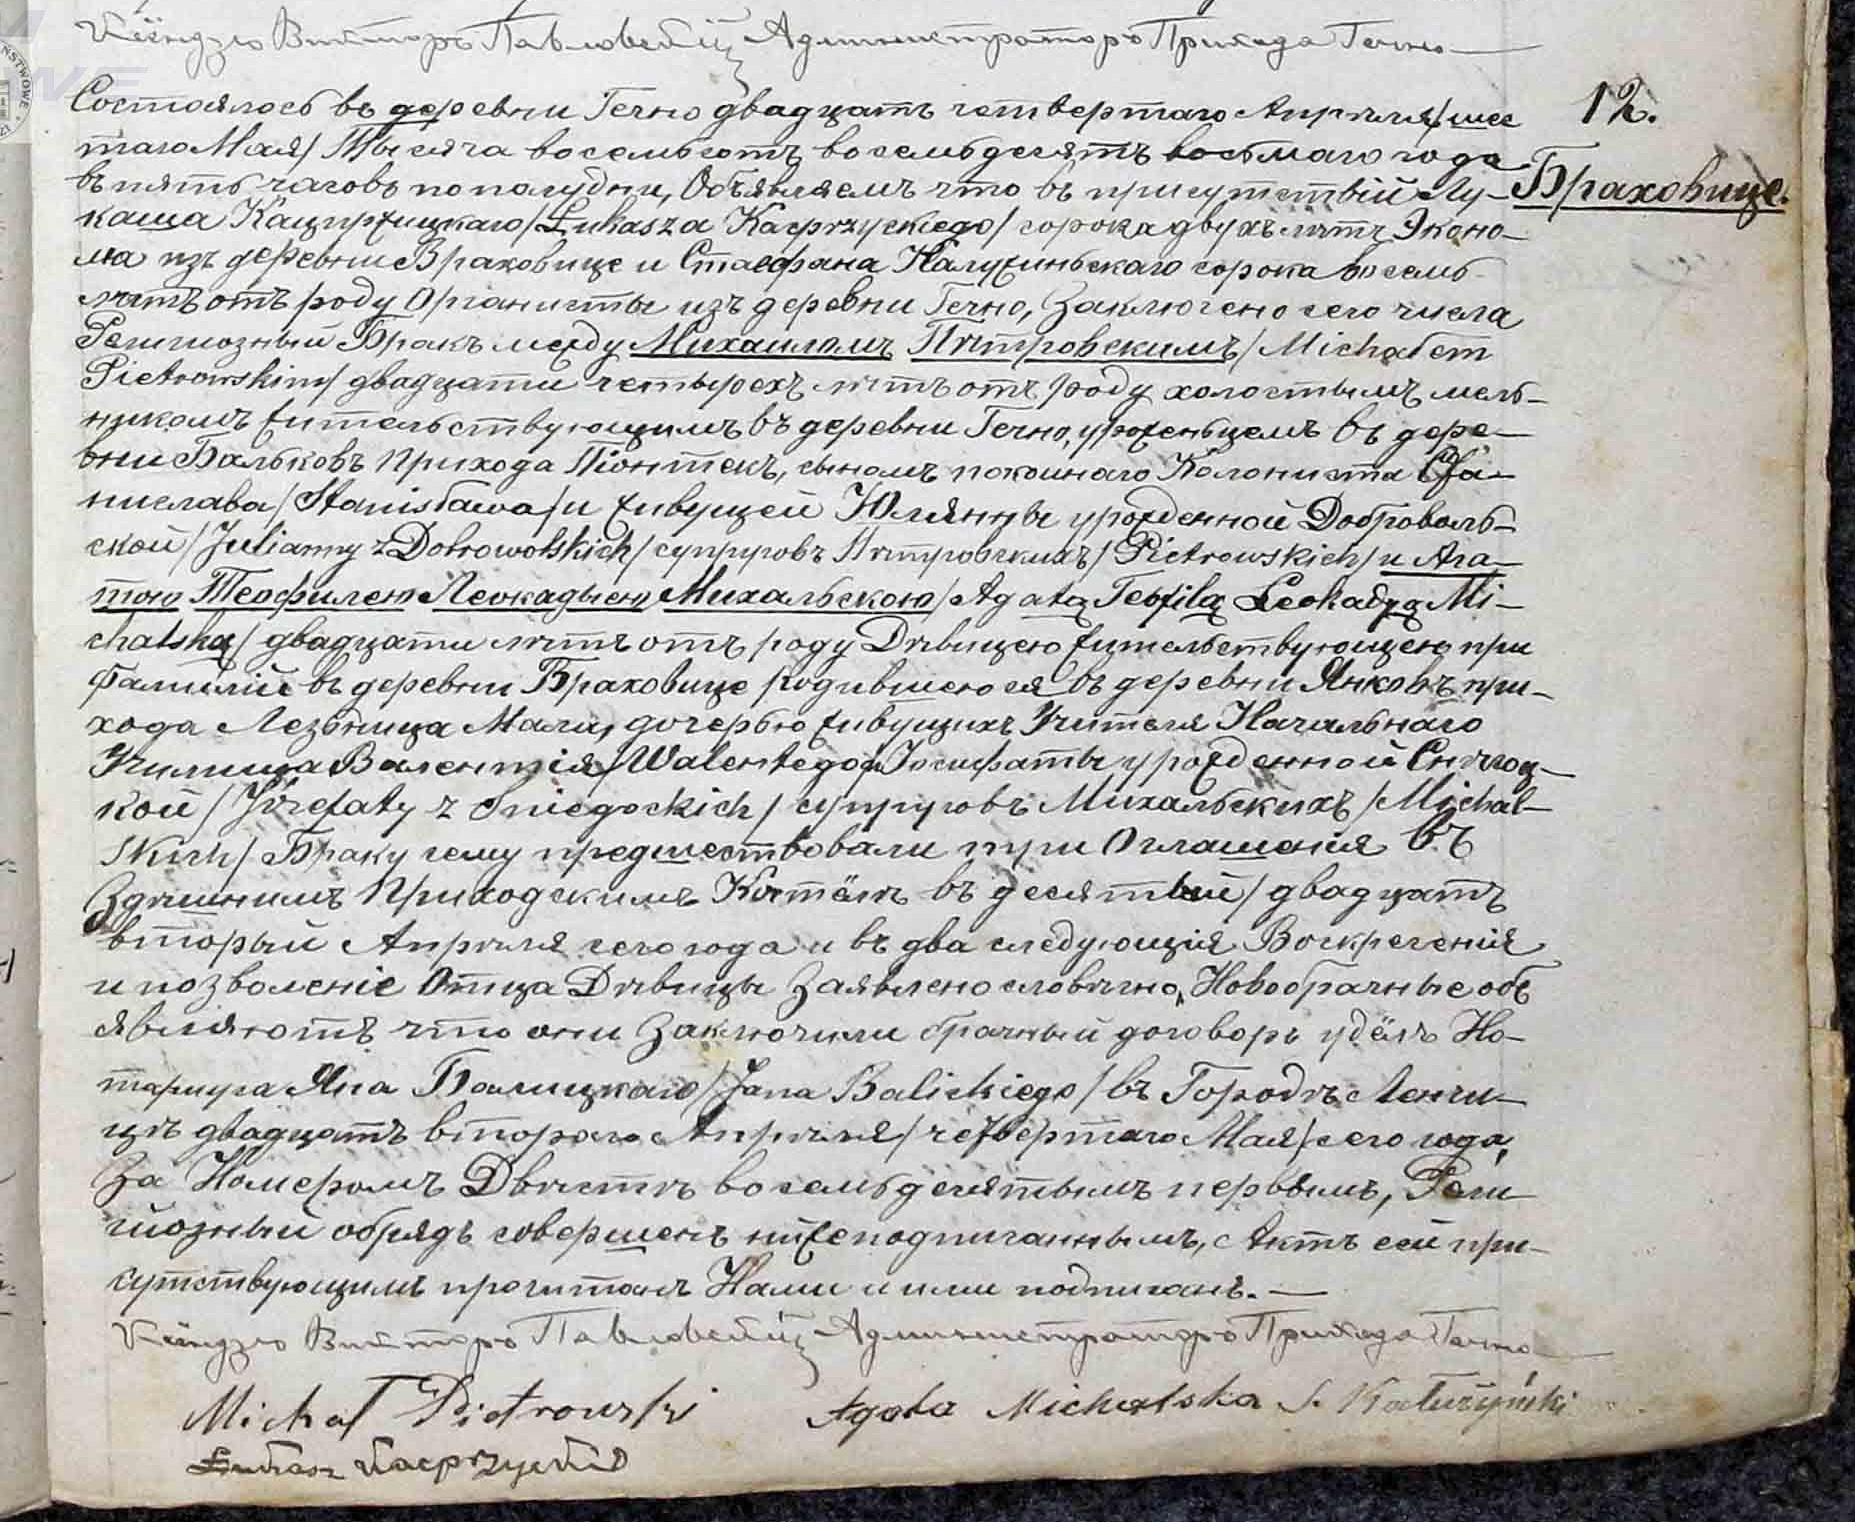 Ксёндзъ Викторъ Павловскій Администраторъ Прихода Гечно
12.
Состоялось въ деревни Гечно двадцать четвертаго Апрѣля/шес
таго Мая/ Тысяча восемьсотъ восемьдесятъ восьмаго года
Браховице.
въ пять часовъ по полудни, Объявляемъ что въ присутствій Лу-
каша Кацпржицкаго/Łukasza Kacprzyckiego/ сорока двухъ лѣтъ Эконо-
ма изъ деревни Браховице и Стаефана Калужиньскаго сорока восемь
лѣтъ отъ роду Органисты изъ деревни Гечно, Заключено сего числа
Религиозный Бракъ между Михаиломъ Пѣтровскимъ/ Michałem
Pietrowskim/ двадцати четырехъ лѣтъ отъ роду холостымъ мель-
никомъ жительствующимъ въ деревни Гечно, уроженьцемъ въ дере-
вни Бальковъ Прихода Піонтекъ, сыномъ покойнаго Колониста Ста-
нислава/ Stanisława/ и живущей Юлянны урожденной Доброволь-
ской/ Julianny z Dobrowolskich/ супруговъ Пѣтровскихъ/ Pietrowskich/ и Ага-
тою Теофилею Леокадыею Михальскою/ Agatą Teofilą Leokadyą Mi-
chalską/ двадцати лѣтъ отъ роду Дѣвицею жительствующею при
Фамилій въ деревни Браховице родившеюся въ деревни Янковъ при-
хода Лезьница Мала, дочерью живущихъ Учителя Начальнаго
Училища Валентія/ Walentego/ и Іосифаты урожденной Снѣгоц-
кой/ Józefaty z Śniegockich/ супруговъ Михальскихъ/ Michal-
skich/ Браку сему предшествовали три Оглашенія въ
Здѣшнимъ Приходскимъ Костёлѣ въ десятый/ двадцать
вторый Апрѣля сего года и въ два следующія Воскресенія
и позволеніе Отца Дѣвицы Заявлено словѣсно, Новобрачные объ
являютъ что они Заключили брачный договоръ у Но-
таріуса Яна Балицкаго/ Jana Balickiego/ въ Городѣ Ленчи-
цѣ двадцать втораго Апрѣля/ четвертаго Мая/ сего года,
За Номеромъ Двѣстѣ восемьдесятымъ первымъ, Рели-
гіозный обрядъ совершенъ нижеподписаннымъ, Актъ сей при-
сутствующимъ прочитанъ Нами и ими подписанъ. —
Ксёндзъ Викторъ Павловскій Администраторъ Прихода Гечно
Michał Pietrowski Agata Michalska S. Kałużyński
Łukasz Kacprzycki